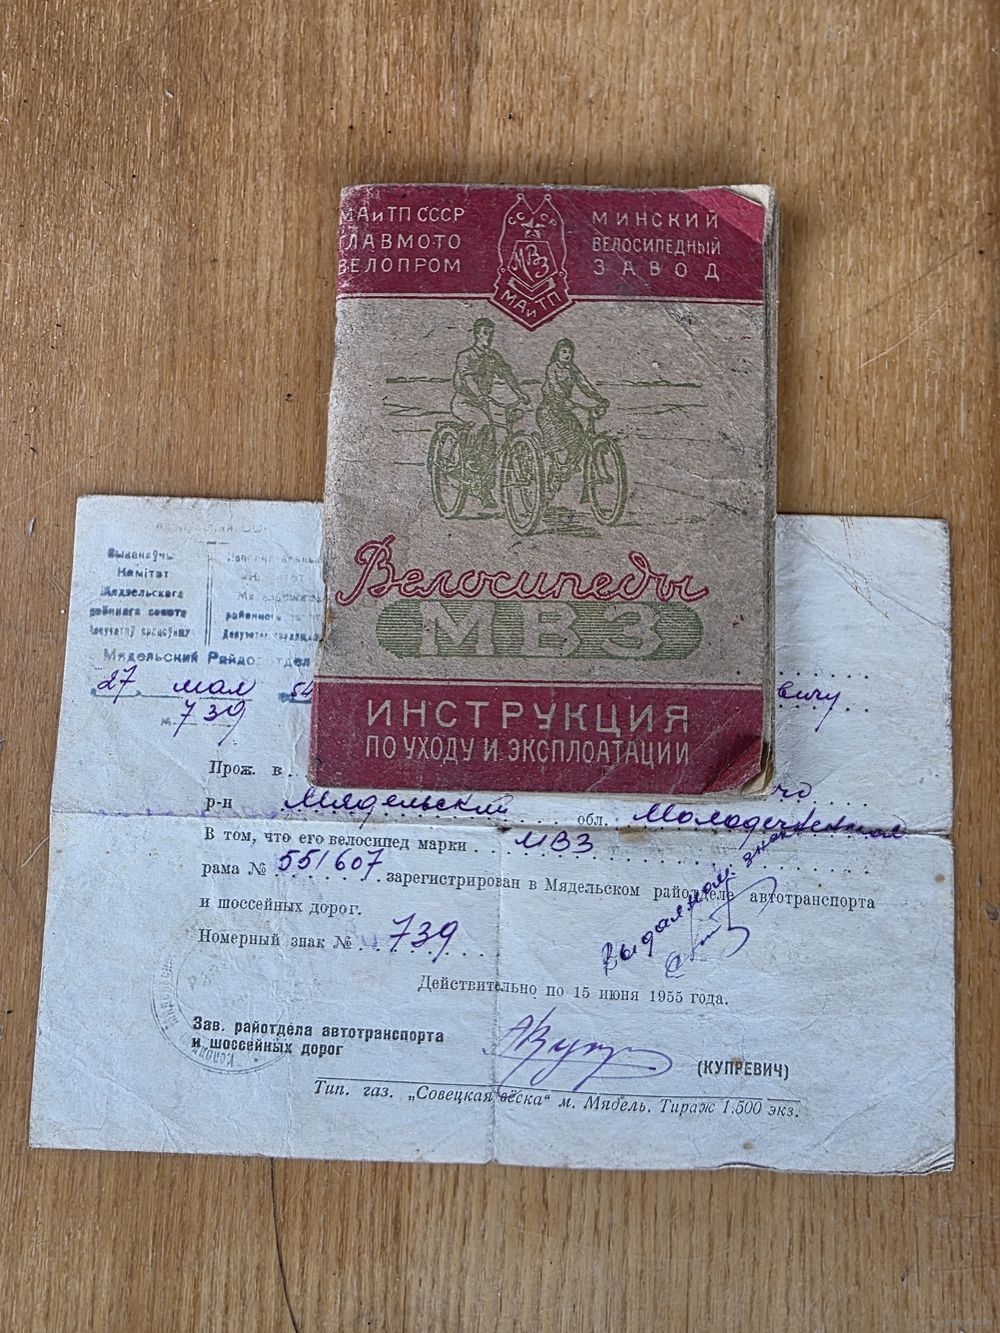 МАиТП СССР
ГЛАВМОТО
ВЕЛОПРОМ
СССР
МВЗ
МАиТП
МИНСКИЙ
ВЕЛОСИПЕДНЫЙ
ЗАВОД
Велосипеды
МВЗ
ИНСТРУКЦИЯ
ПО УХОДУ И ЭКСПЛОАТАЦИИ
Выканаўчы
Камітэт
Мядзельскага
раённага савета
дэпутатаў працоўных
Мядельский Райдоротдел
27 мая 54
739
вичу
Прож. в
р-н Мядельский обл. Молодечненской
В том, что его велосипед марки МВЗ
рама № 551607 зарегистрирован в Мядельском райотделе автотранспорта
и шоссейных дорог.
Номерный знак № 739
Выдал ном. знак
Действительно по 15 июня 1955 года.
Зав. райотдела автотранспорта
и шоссейных дорог
(КУПРЕВИЧ)
Тип. газ. „Совецкая вёска“ м. Мядель. Тираж 1.500 экз.